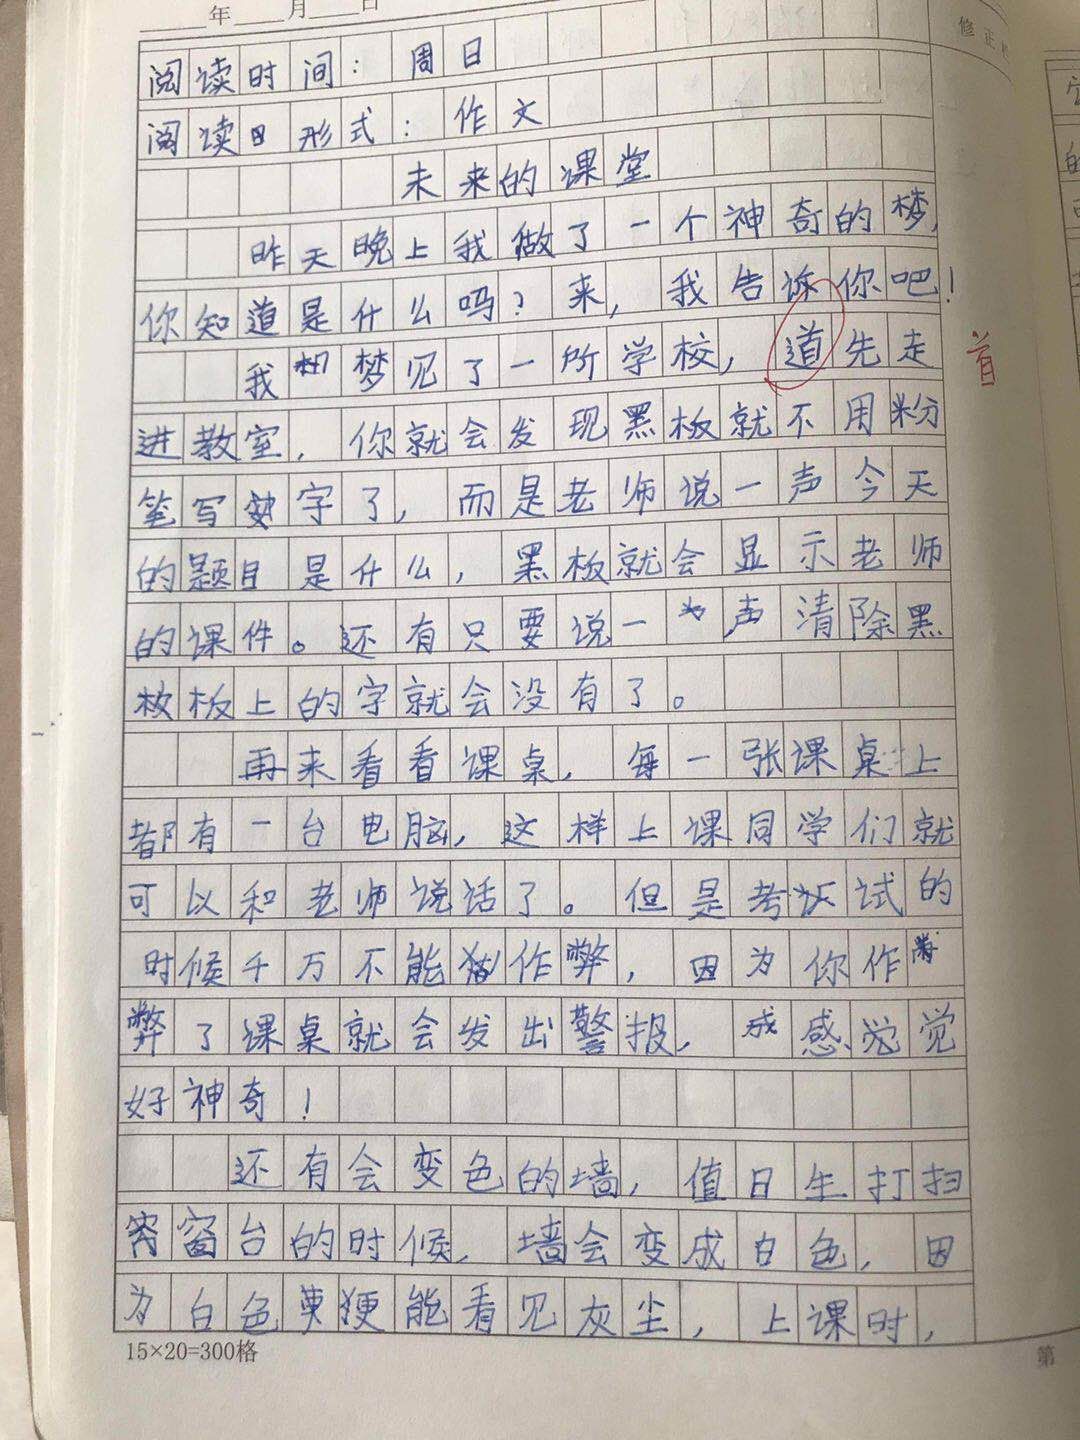 年 月 日
修正
阅读时间：周日
阅读形式：作文
未来的课堂
昨天晚上我做了一个神奇的梦，
你知道是什么吗？来，我告诉你吧！
我梦见了一所学校，道先走
首
进教室，你就会发现黑板就不用粉
笔写字了，而是老师说一声今天
的题目是什么，黑板就会显示老师
的课件。还有只要说一声清除黑
板上的字就会没有了。
再来看看课桌，每一张课桌上
都有一台电脑，这样上课同学们就
可以和老师说话了。但是考试的
时候千万不能作弊，因为你作
弊了课桌就会发出警报，感觉觉
好神奇！
还有会变色的墙，值日生打扫
窗台的时候，墙会变成白色，因
为白色更能看见灰尘，上课时，
15×20=300格
第